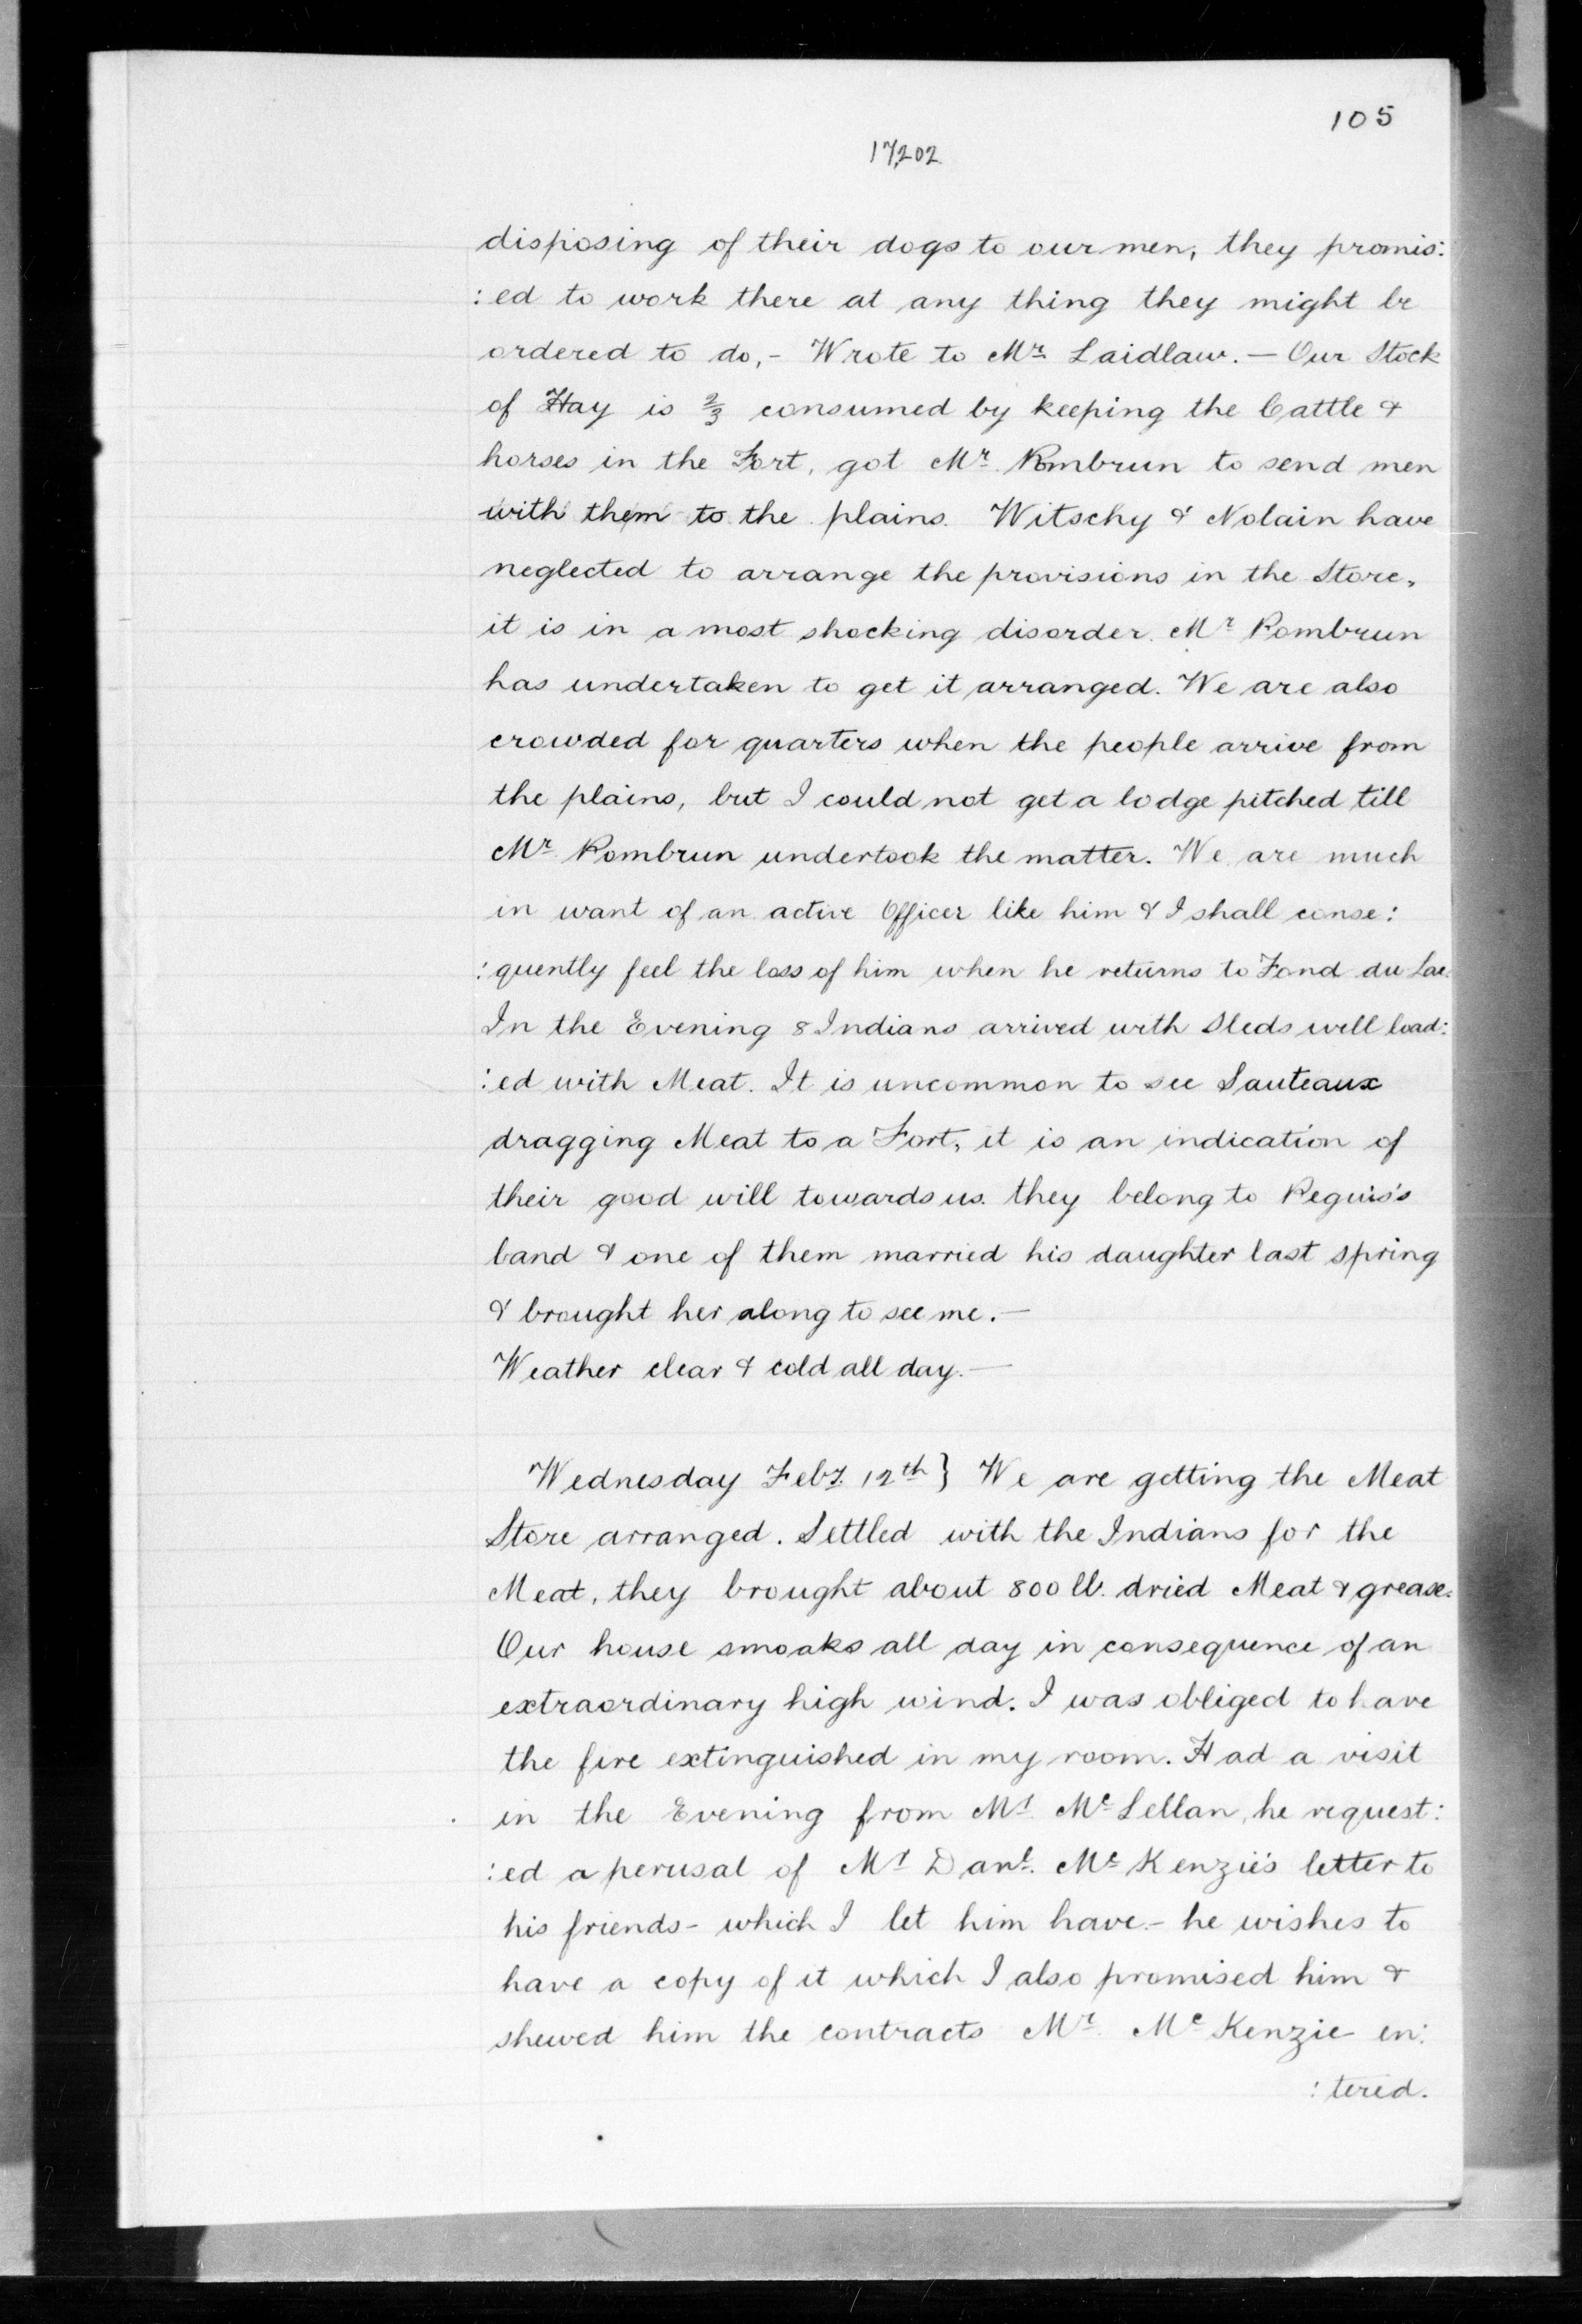 105
17202
disposing of their dogs to our men, they promis:
:ed to work there at any thing they might be
ordered to do, - Wrote to Mr. Laidlaw. — Our Stock
of Hay is 2/3 consumed by keeping the Cattle &
horses in the Fort, got Mr. Pombrun to send men
with them to the plains. Witschy & Nolain have
neglected to arrange the provisions in the Store,
it is in a most shocking disorder. Mr. Pombrun
has undertaken to get it arranged. We are also
crowded for quarters when the people arrive from
the plains, but I could not get a lodge pitched till
Mr. Pombrun undertook the matter. We are much
in want of an active Officer like him & I shall conse:
:quently feel the loss of him when he returns to Fond du Lac.
In the Evening 8 Indians arrived with Sleds well load:
:ed with Meat. It is uncommon to see Sauteaux
dragging Meat to a Fort, it is an indication of
their good will towards us. they belong to Peguis's
band & one of them married his daughter last spring
& brought her along to see me. —
Weather clear & cold all day. —
Wednesday Feby. 12th } We are getting the Meat
Store arranged. Settled with the Indians for the
Meat, they brought about 800 lb. dried Meat & grease.
Our house smoaks all day in consequence of an
extraordinary high wind. I was obliged to have
the fire extinguished in my room. Had a visit
in the Evening from Mr. McLellan, he request:
:ed a perusal of Mr. Danl. McKenzie's letter to
his friends - which I let him have. - he wishes to
have a copy of it which I also promised him &
shewed him the contracts Mr. McKenzie en:
:tered.